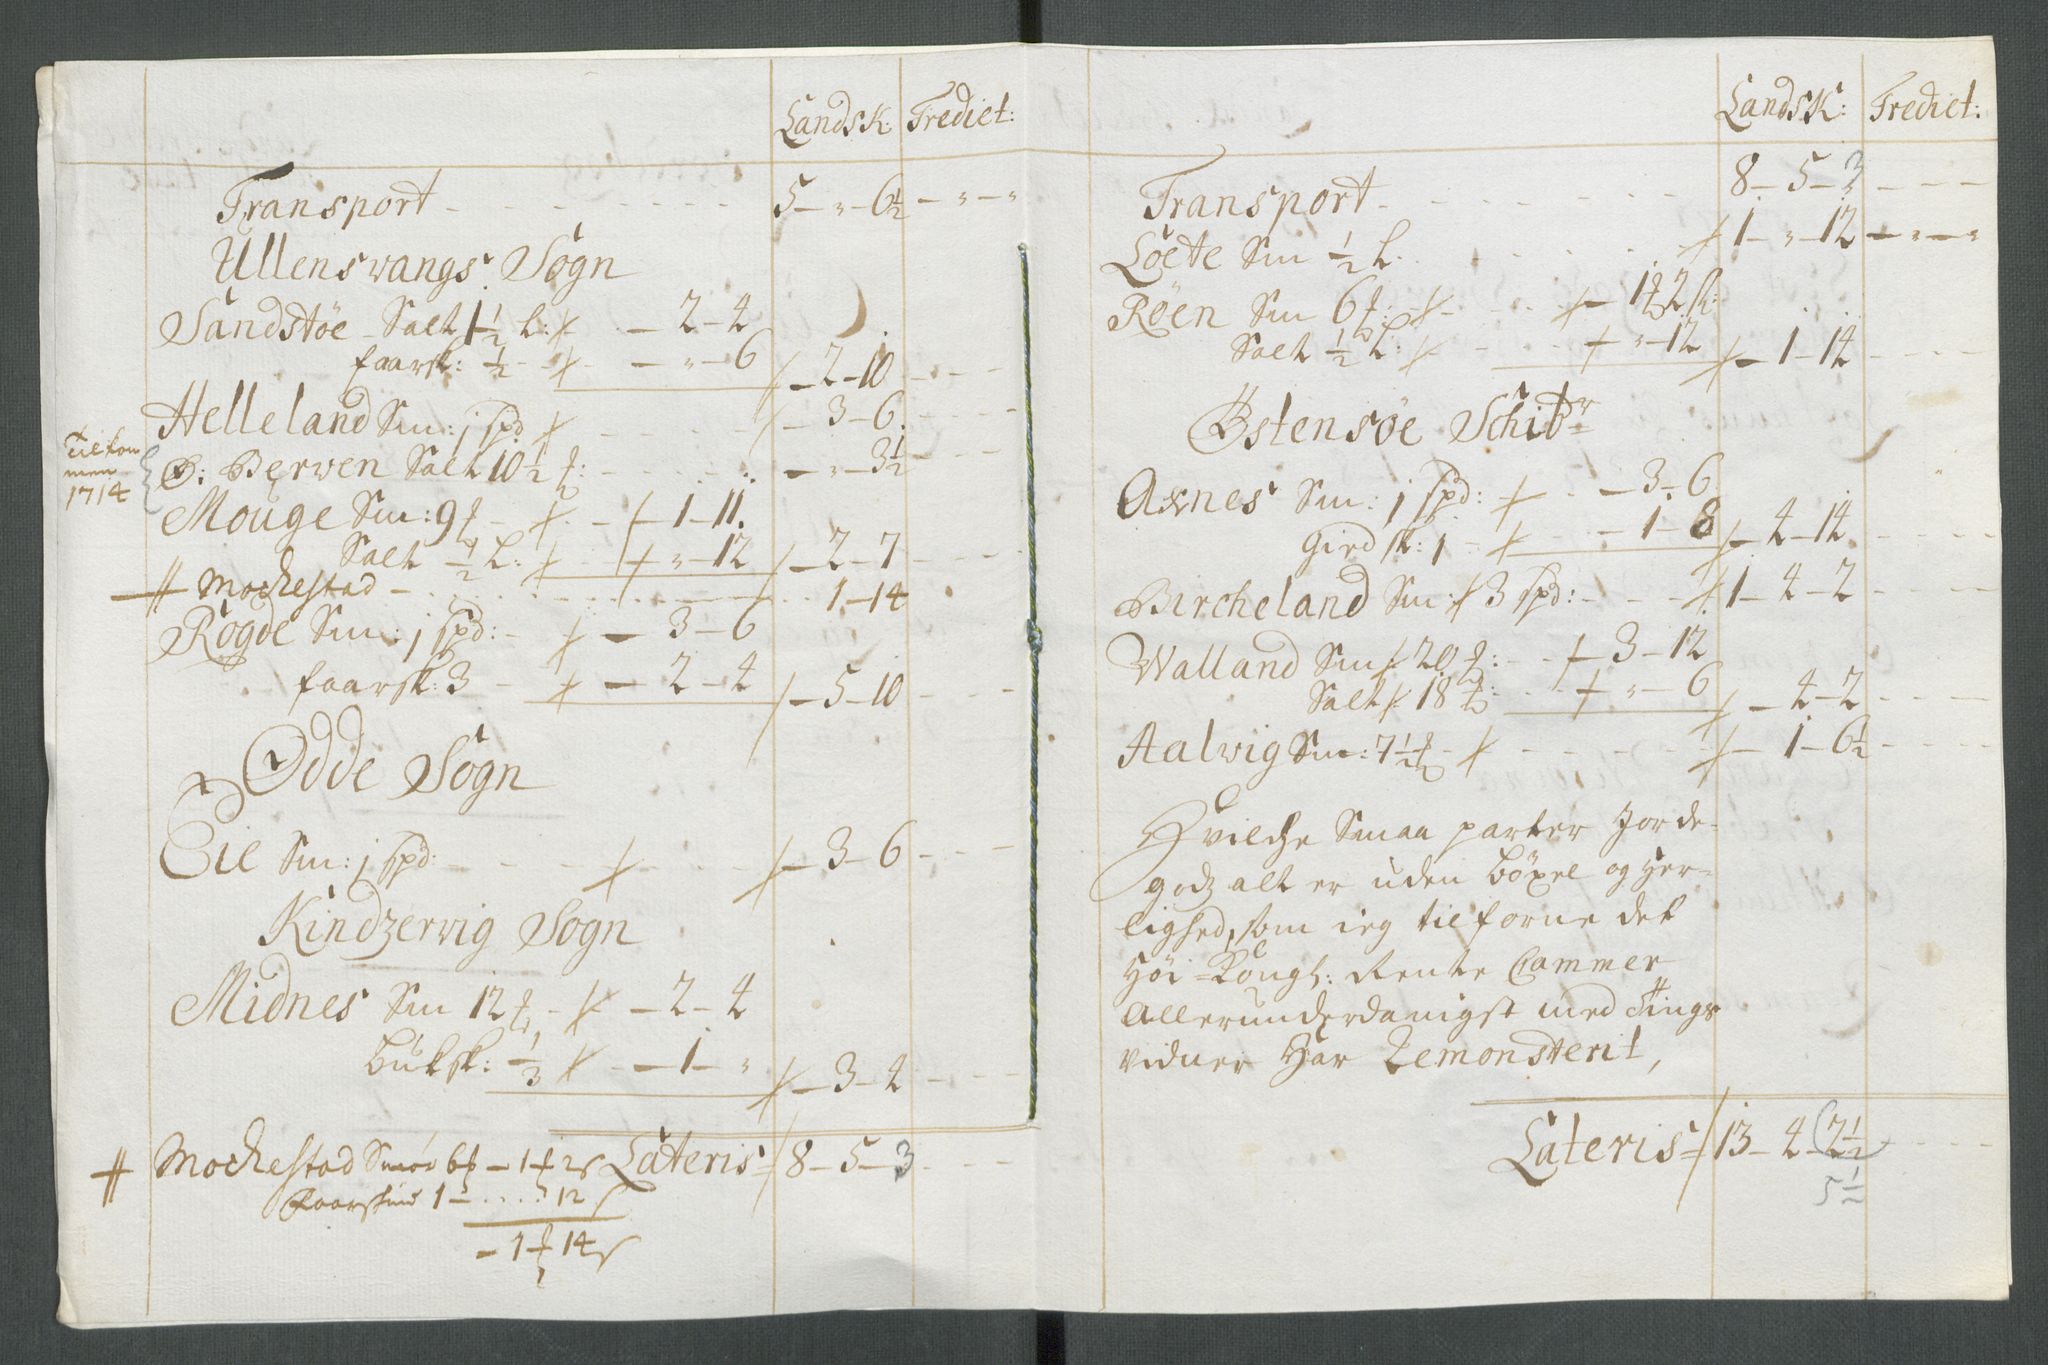 Landsk: Trediet:
Transport - - - - - - - 5 - " - 6½ - " - "
Ullensvangs Sogn
Sandstøe Salt 1½ L: - 2 - 4
faarsk: ½ - - " - 6 - 2 - 10 - - -
Helleland Sm: j spd - - - - - 3 - 6 - - -
Tilkom
men
1714
O: Berven Salt 10½ - - - - " - 3½
Mouge Sm: 9 - - 1 - 11
Salt ½ L: " - 12 - 2 - 7 - - -
# Mochestad - - - - - 1 - 14
Røgde Sm: j spd: - - 3 - 6
faarsk: 3 - - 2 - 4 - 5 - 10 - - -
Odde Sogn
Eil Sm: j spd: - - - - - 3 - 6 - - -
Kindzervig Sogn
Midnes Sm 12 - - 2 - 4
Buksk: ⅓ - 1 - " - 3 - 4 - - -
Lateris = 8 - 5 - 3 - - -
# Mochestad Smør 6 - 1 2 s
Faarskind 1 - .... " 12 s
- 1 14 s
Landsk: Trediet:
Transport - - - - - - 8 - 5 - 3 - - -
Loete Sm ½ L. - - - - 1 - " - 12 - " - "
Røen Sm 6 - - - 1 2 s:
Salt ½ L: - - " - 12 - 1 - 14 - - -
Østensøe Schibr
Axnes Sm: j spd: - - 3 - 6
Gied sk: j - - 1 - 8 - 4 - 14 - - -
Bircheland Sm: 3 spd: - - - 1 - 4 - 2 - - -
Walland Sm 20 : - - 3 - 12
Salt 18 : - - " - 6 - 4 - 2 - - -
Aalvig Sm: 7½ - - - - 1 - 6½ - - -
Hvilche Smaa parter Jorde-
godz alt er uden Bøxel og Her-
lighed, som ieg tilforne det
Höi-Kongl: Rente Cammer
Allerunderdanigst med Tings
vidner Har Remonsterit,
Lateris = 13 - 4 - 2½ - - -
5½